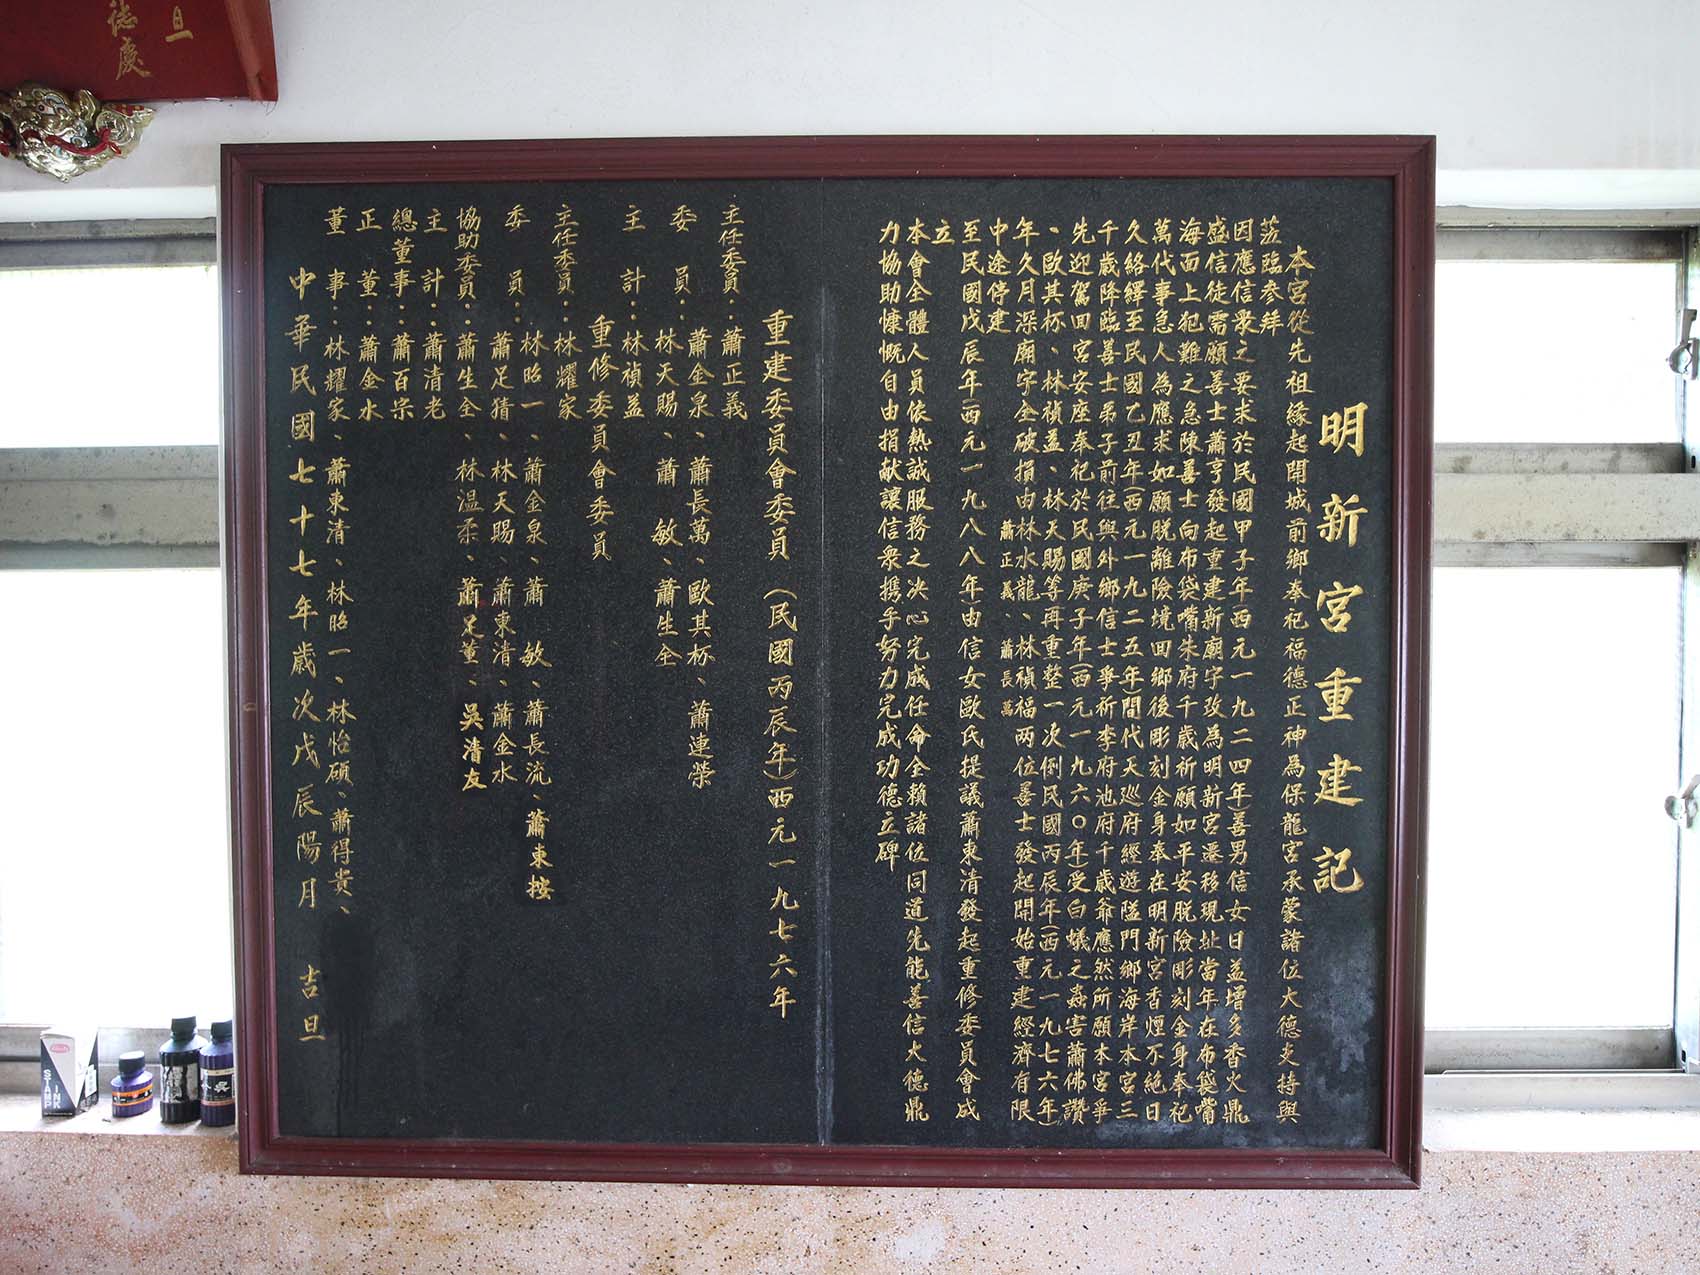 明新宮重建記
本宮從先祖緣起開城前鄉奉祀福德正神為保龍宮承蒙諸位大德支持與
蒞臨参拜
因應信眾之要求於民國甲子年(西元一九二四年)善男信女日益增多香火鼎
盛信徒需願善士蕭亨發起重建新廟宇改為明新宮遷移現址當年在布袋嘴
海面上犯難之急陳善士向布袋嘴朱府千歲祈願如平安脫險彫刻金身奉祀
萬代事急人為應求如願脫離險境回鄉後彫刻金身奉在明新宮香煙不絶日
久絡繹至民國乙丑年(西元一九二五年)間代天巡府經遊隘門鄉海岸本宮三
千歲降臨善士弟子前往與外鄉信士爭祈李府池府千歲爺應然所願本宮爭
先迎駕回宮安座奉祀於民國庚子年(西元一九六〇年)受白蟻之蟲害蕭佛讚
、歐其杯、林禎益、林天賜等再重整一次倒民國丙辰年(西元一九七六年)
年久月深廟宇全破損由林水龍、林禎福兩位善士發起開始重建經濟有限
蕭正義、蕭長萬
中途停建
至民國戊辰年(西元一九八八年)由信女歐氏提議蕭東清發起重修委員會成
立
本會全體人員依熱誠服務之决心完成任命全賴諸位同道先能善信大德鼎
力協助慷慨自由捐献讓信眾携手努力完成功德立碑
重建委員會委員 (民國丙辰年)西元一九七六年
主任委員：蕭正義
委 員：蕭金泉、蕭長萬、歐其杯、蕭連榮
林天賜、蕭 敏、蕭生全
主 計：林禎益
重修委員會委員
主任委員：林耀家
委 員：林昭一、蕭金泉、蕭 敏、蕭長流、蕭東按
蕭足猜、林天賜、蕭東清、蕭金水
協助委員：蕭生全、林温柔、蕭足董、吳清友
主 計：蕭清老
總董事：蕭百宗
正 董：蕭金水
董 事：林耀家、蕭東清、林昭一、林怡碩、蕭得貴、
中華民國七十七年歲次戊辰陽月 吉旦
旦
慶
STAMP INK